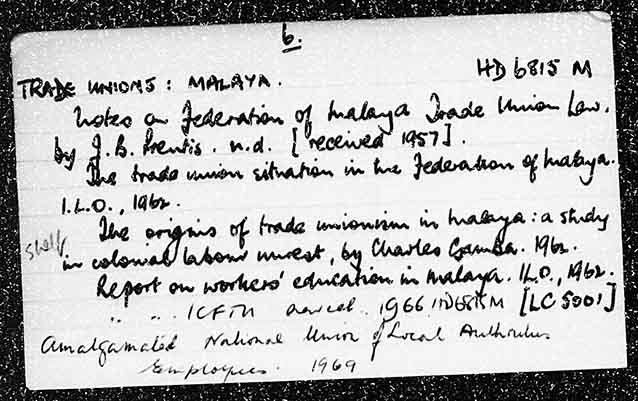 6.
HD 6815 M
TRADE UNIONS : MALAYA.
Notes on Federation of Malaya Trade Union Law.
by J.B. Prentis. n.d. [received 1957].
The trade union situation in the Federation of Malaya.
I.L.O., 1962.
The origins of trade unionism in Malaya: a study
shelf
in colonial labour unrest, by Charles Gamba. 1962.
Report on workers' education in Malaya. ILO., 1962.
" " . ICFTU 1966 HD6815M [LC 5001]
Amalgamated National Union of Local Authorities
Employees. 1969